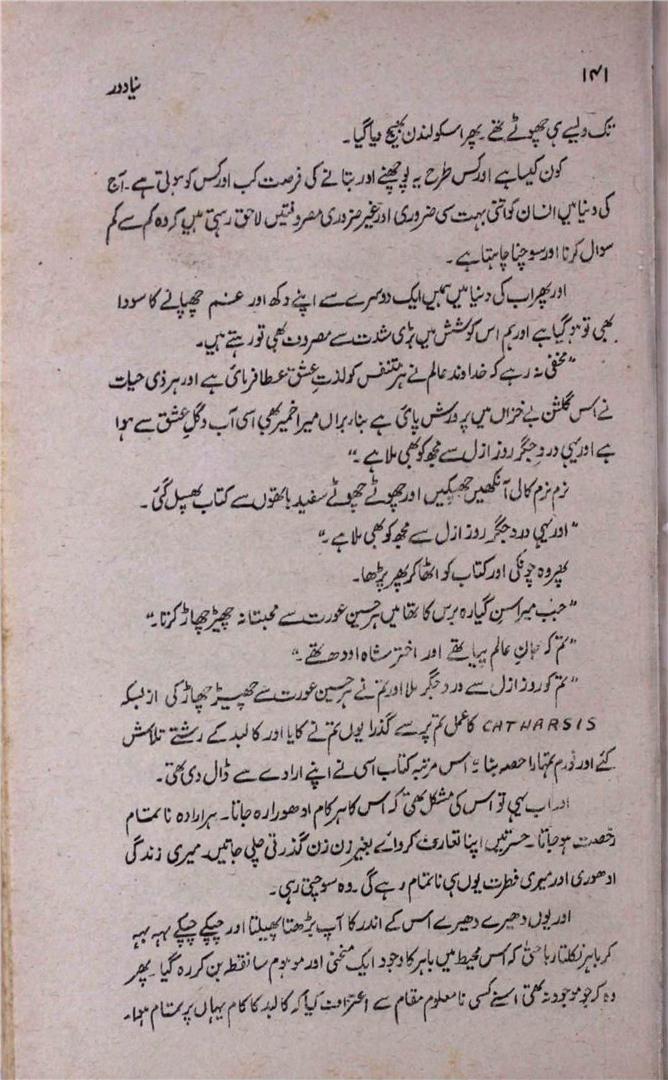 ۱۴۱
نیا دور
تک ویسے ہی چھوٹے تھے۔ پھر اسکو لندن بھیج دیا گیا۔
کون کیسا ہے اور کس طرح یہ پوچھنے اور بتانے کی فرصت کب اور کس کو ہوتی ہے۔ آج
کی دنیا میں انسان کو اتنی بہت سی ضروری اور غیر ضروری مصروفیتیں لاحق رہتی ہیں کہ وہ کم سے کم
سوال کرنا اور سوچنا چاہتا ہے۔
اور پھر اب کی دنیا میں ہمیں ایک دوسرے سے اپنے دکھ اور غم چھپانے کا سودا
بھی تو ہو گیا ہے اور ہم اس کوشش میں بڑی شدت سے مصروف بھی تو رہتے ہیں۔
"مخفی نہ رہے کہ خداوند عالم نے ہر متنفس کو لذتِ عشق عطا فرمائی ہے اور ہر ذی حیات
نے اس گلشن بے خزاں میں پرورش پائی ہے بنا بر اں میرا خمیر بھی اسی آب و گلِ عشق سے ہوا
ہے اور یہی دردِ جگر روز ازل سے مجھ کو بھی ملا ہے۔"
نرم نرم کالی آنکھیں جھپکیں اور چھوٹے چھوٹے سفید ہاتھوں سے کتاب پھسل گئی۔
"اور یہی درد جگر روز ازل سے مجھ کو بھی ملا ہے۔"
پھر وہ چونکی اور کتاب کو اٹھا کر پھر پڑھا۔
"جب میرا سن گیارہ برس کا تھا میں ہر حسین عورت سے محبتانہ چھیڑ چھاڑ کرتا۔"
"تم کہ جانِ عالم پیا تھے اور اختر شاہ اودھ تھے۔"
"تم کو روز ازل سے درد جگر ملا اور تم نے ہر حسین عورت سے چھیڑ چھاڑ کی از بسکہ
CATHARSIS کا عمل تم پر سے گذرا یوں تم نے گایا اور کالبد کے رشتے تلاش
کئے اور دُرم تمہارا حصہ بنا" اس مرتبہ کتاب اسی نے اپنے ارادے سے ڈال دی تھی۔
اور اب یہی تو اس کی مشکل تھی کہ اس کا ہر کام ادھورا رہ جاتا۔ ہر ارادہ ناتمام
رخصت ہو جاتا۔ حسرتیں اپنا تعارف کروائے بغیر زن زن گذرتی چلی جاتیں۔ میری زندگی
ادھوری اور میری فطرت یوں ہی ناتمام رہے گی۔ وہ سوچتی رہی۔
اور یوں دھیرے دھیرے اس کے اندر کا آپ بڑھتا پھیلتا اور چپکے چپکے بہہ بہہ
کر باہر نکلتا رہا حتیٰ کہ اس محیط میں باہر کا وجود ایک منحنی اور موہوم سا نقطہ بن کر رہ گیا۔ پھر
وہ کہ جو موجود نہ تھی اسنے کسی نامعلوم مقام سے اعتراف کیا کہ کالبد کا کام یہاں پر تمام ہوا۔